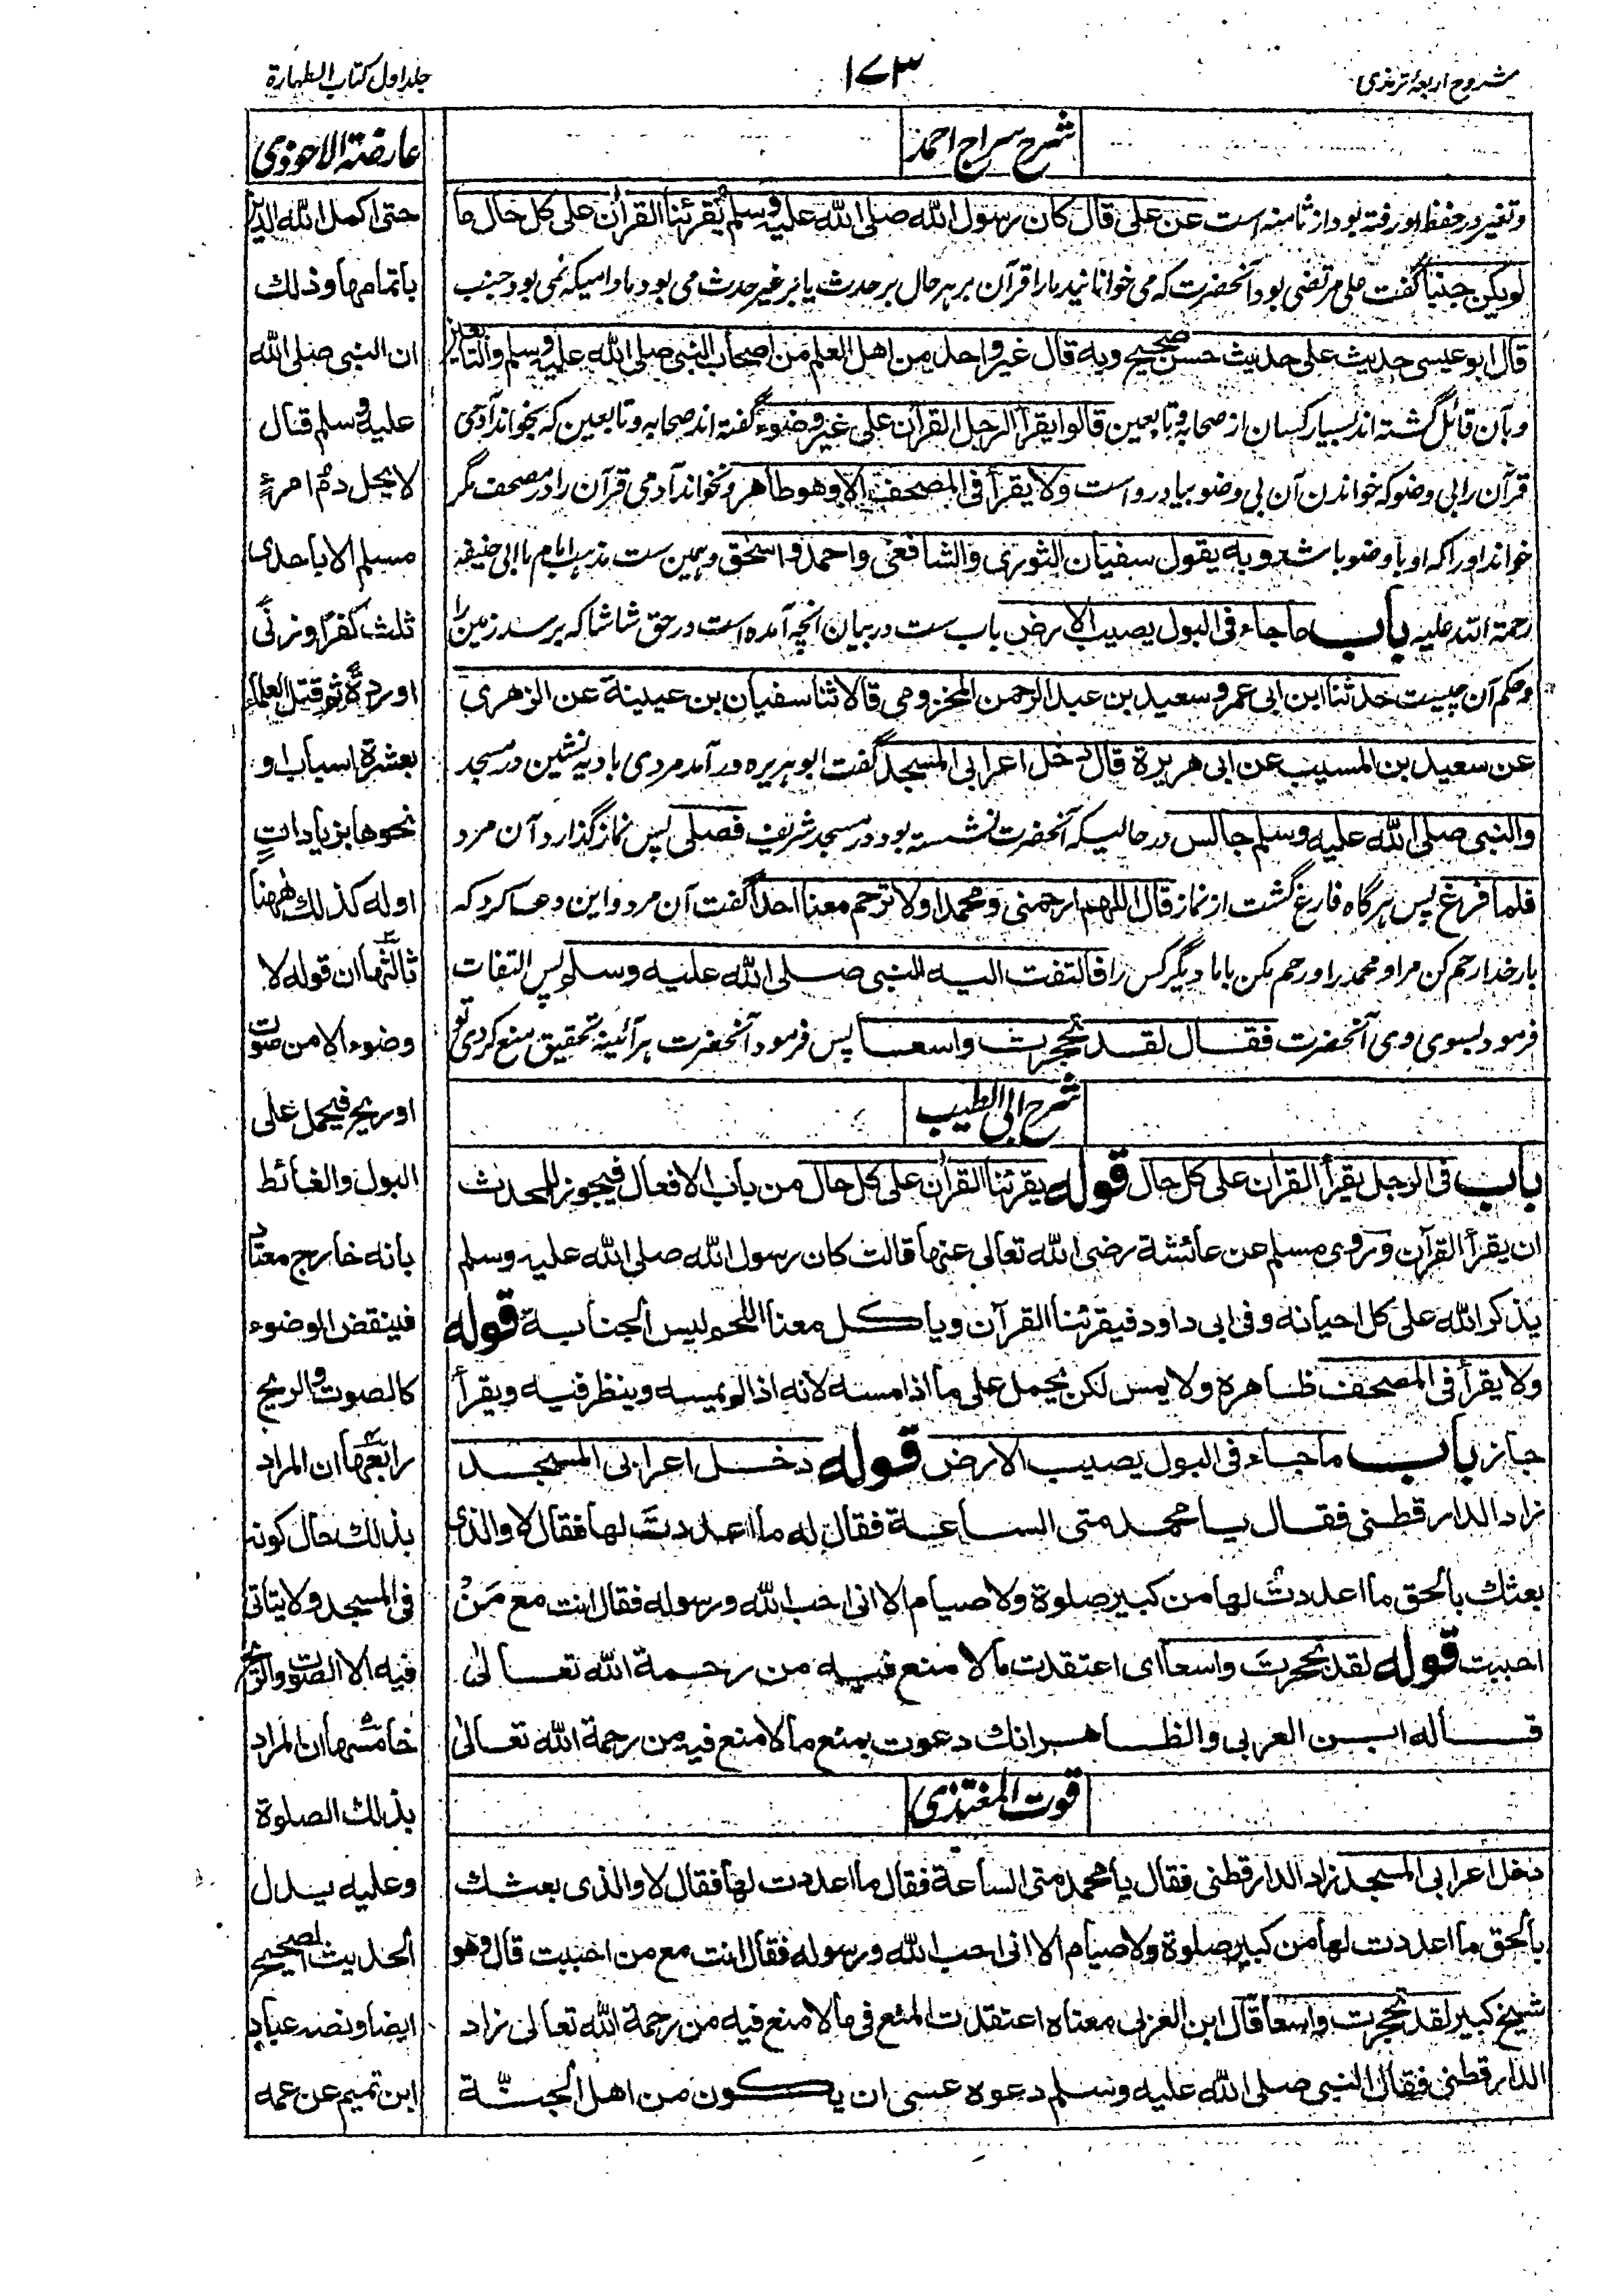 شروح اربعۂ ترمذی
١٧٣
جلد اول کتاب الطهارة
شرح سراج احمد
وتغیر در حفظ او رفته بود از ثامنه است عن علی قال کان رسول الله صلی الله علیه وسلم یُقرئنا القرأن علی کل حال ما
لم یکن جنبا گفت علی مرتضی بود آنحضرت که می خوانانید مارا قرآن بر هر حال بر حدث یا بر غیر حدث می بود مادامیکه نمی بود جنب
قال ابو عیسی حدیث علی حدیث حسن صحیح وبه قال غیر واحد من اهل العلم من اصحاب النبی صلی الله علیه وسلم والتابعین
وبآن قائل گشته اند بسیار کسان از صحابه و تابعین قالوا یقرأ الرجل القرأن علی غیر وضوء گفته اند صحابه و تابعین که بخواند آدمی
قرآن را بی وضو که خواندن آن بی وضو بیاد رواست ولا یقرأ فی المصحف الا وهو طاهر و نخواند آدمی قرآن را در مصحف مگر
خواند او را که او با وضو باشد وبه یقول سفیان الثوری والشافعی واحمد واسحٰق و همین ست مذهب امام ما ابی حنیفه
رحمة الله علیه باب ما جاء فی البول یصیب الارض باب ست در بیان آنچه آمده است در حق شاشا که برسد زمین را
وحکم آن چیست حدثنا ابن ابی عمر وسعید بن عبد الرحمن المخزومی قالا ثنا سفیان بن عیینة عن الزهری
عن سعید بن المسیب عن ابی هریرة قال دخل اعرابی المسجد گفت ابو هریره در آمد مردی بادیه نشین در مسجد
والنبی صلی الله علیه وسلم جالس در حالیکه آنحضرت نشسته بود در مسجد شریف فصلی پس نماز گذارد آن مرد
فلما فرغ پس هرگاه فارغ گشت از نماز قال اللهم ارحمنی ومحمدا ولا ترحم معنا احدا گفت آن مرد و این دعا کرد که
بار خدا رحم کن مرا و محمد را و رحم مکن با ما دیگر کس را فالتفت الیه النبی صلی الله علیه وسلم پس التفات
فرمود بسوی وی آنحضرت فقال لقد تحجرت واسعا پس فرمود آنحضرت هر آئینه تحقیق منع کردی تو
شرح ابی الطیب
باب فی الرجل یقرأ القرأن علی کل حال قوله یقرئنا القرأن علی کل حال من باب الافعال فیجوز للمحدث
ان یقرأ القرآن وروی مسلم عن عائشة رضی الله تعالی عنها قالت کان رسول الله صلی الله علیه وسلم
یذکر الله علی کل احیانه وفی ابی داود فیقرئنا القرآن ویاکل معنا اللحم لیس الجنابة قوله
ولا یقرأ فی المصحف ظاهره ولا یمس لکن یحمل علی ما اذا مسه لانه اذا لم یمسه وینظر فیه ویقرأ
جاز باب ما جاء فی البول یصیب الارض قوله دخل اعرابی المسجد
زاد الدارقطنی فقال یا محمد متی الساعة فقال له ما اعددتَ لها فقال لا والذی
بعثك بالحق ما اعددتُ لها من کبیر صلوة ولا صیام الا انی احب الله ورسوله فقال انت مع مَنْ
احببت قوله لقد تحجرتَ واسعا ای اعتقدت مالا منع فیه من رحمة الله تعالیٰ
قاله ابن العربی والظاهر انك دعوت بمنع مالا منع فیه من رحمة الله تعالیٰ
قوت المغتذی
دخل اعرابی المسجد زاد الدارقطنی فقال یا محمد متی الساعة فقال ما اعددت لها فقال لا والذی بعثك
بالحق ما اعددت لها من کبیر صلوة ولا صیام الا انی احب الله ورسوله فقال انت مع من احببت قال وهو
شیخ کبیر لقد تحجرت واسعا قال ابن العربی معناه اعتقدت المنع فی مالا منع فیه من رحمة الله تعالی زاد
الدارقطنی فقال النبی صلی الله علیه وسلم دعوه عسی ان یکون من اهل الجنّة
عارضة الاحوذی
حتی اکمل الله الدین
باتمامها وذلك
ان النبی صلی الله
علیه وسلم قال
لا یحل دمُ امرءٍ
مسلم الا باحدی
ثلث کفرٌ او زنًی
او ردة ثم قتل العلماء
بعشرة اسباب و
نحوها بزیاداتٍ
اوله کذلك ههنا
ثالثها ان قوله لا
وضوء الا من صوت
او ریح فیحمل علی
البول والغائط
بانه خارج معتاد
فینقض الوضوء
کالصوت والریح
رابعها ان المراد
بذلك حال کونه
فی المسجد ولا یتأتی
فیه الا الصوت والریح
خامسها ان المراد
بذلك الصلوة
وعلیه یدل
الحدیث الصحیح
ایضا ونصه عباد
ابن تمیم عن عمه